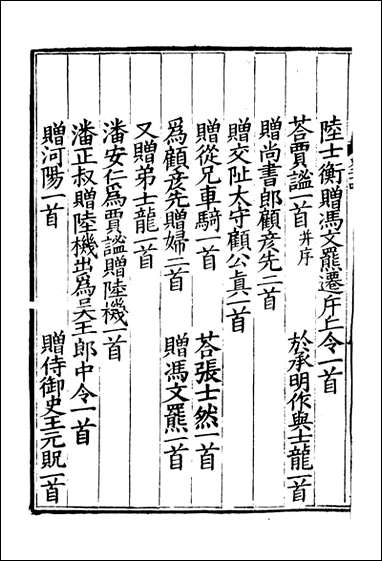 陸士衡贈馮文羆遷斥丘令一首
荅賈謐一首并序 於承明作與士龍一首
贈尚書郎顧彦先二首
贈交阯太守顧公真一首
贈從兄車騎一首 荅張士然一首
爲顧彦先贈婦二首 贈馮文羆一首
又贈弟士龍一首
潘安仁爲賈謐贈陸機一首
潘正叔贈陸機出爲吳王郎中令一首
贈河陽一首 贈侍御史王元貺一首